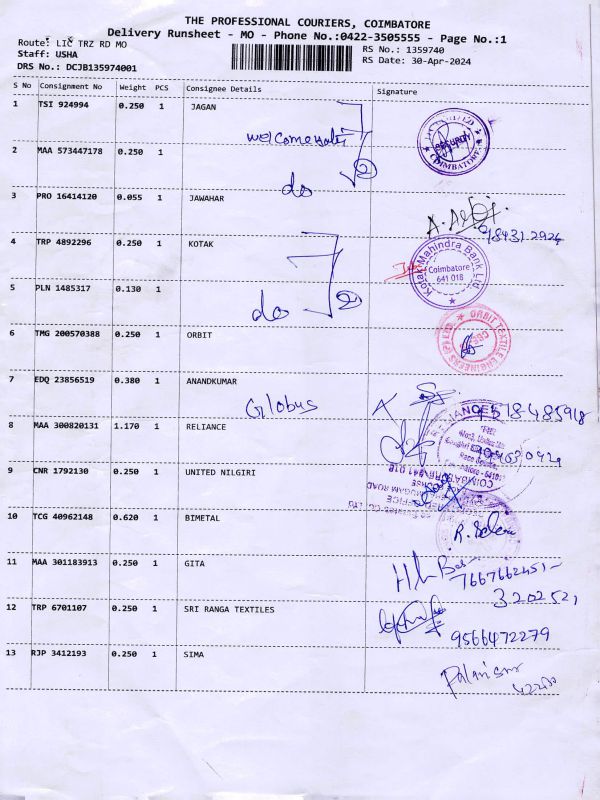 THE PROFESSIONAL COURIERS, COIMBATORE
Delivery Runsheet - MO - Phone No.:0422-3505555 - Page No.:1
Route: LIC TRZ RD MO
RS No.: 1359740
Staff: USHA
RS Date: 30-Apr-2024
DRS No.: DCJB135974001
S No Consignment No Weight PCS Consignee Details Signature
1 TSI 924994 0.250 1 JAGAN
COIMBATORE
2 MAA 573447178 0.250 1
do
3 PRO 16414120 0.055 1 JAWAHAR
4 TRP 4892296 0.250 1 KOTAK
Kotak Mahindra Bank Ltd.
Coimbatore
641 018
5 PLN 1485317 0.130 1
do
6 TMG 200570388 0.250 1 ORBIT
ORBIT TEXTILE ENGINEERS
7 EDQ 23856519 0.380 1 ANANDKUMAR
Globus
8 MAA 300820131 1.170 1 RELIANCE
9 CNR 1792130 0.250 1 UNITED NILGIRI
10 TCG 40962148 0.620 1 BIMETAL
11 MAA 301183913 0.250 1 GITA
7667662451
3202521
12 TRP 6701107 0.250 1 SRI RANGA TEXTILES
9566472279
13 RJP 3412193 0.250 1 SIMA